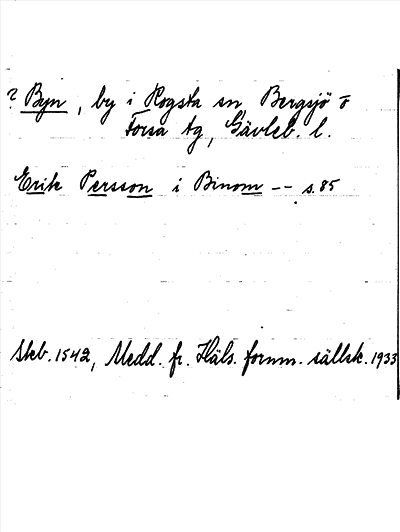 ? Byn, by i Rogsta sn, Bergsjö o
Forsa tg, Gävleb. l.
Erik Persson i Binom -- s. 85
Skb. 1542, Medd. fr. Häls. fornm. sällsk. 1933